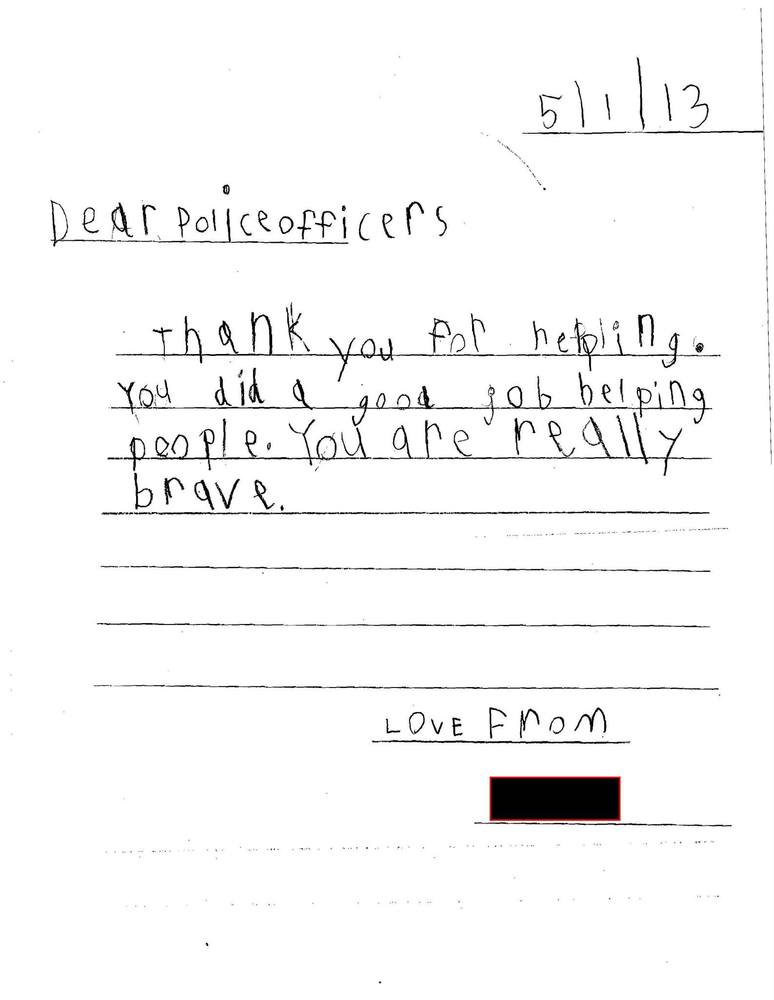 5/1/13
Dear Policeofficers
Thank you For helping.
You did a good job helping
people. You are really
brave.
LOVE FROM